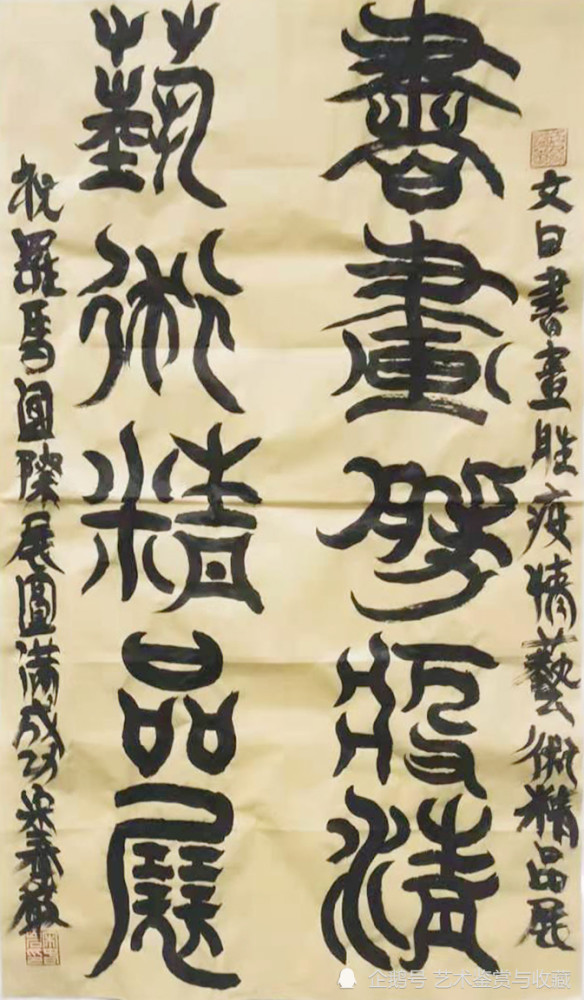 文曰書畫胜疫情藝術精品展
書畫勝疫情
藝術精品展
祝羅馬國際展圓滿成功
企鹅号 艺术鉴赏与收藏